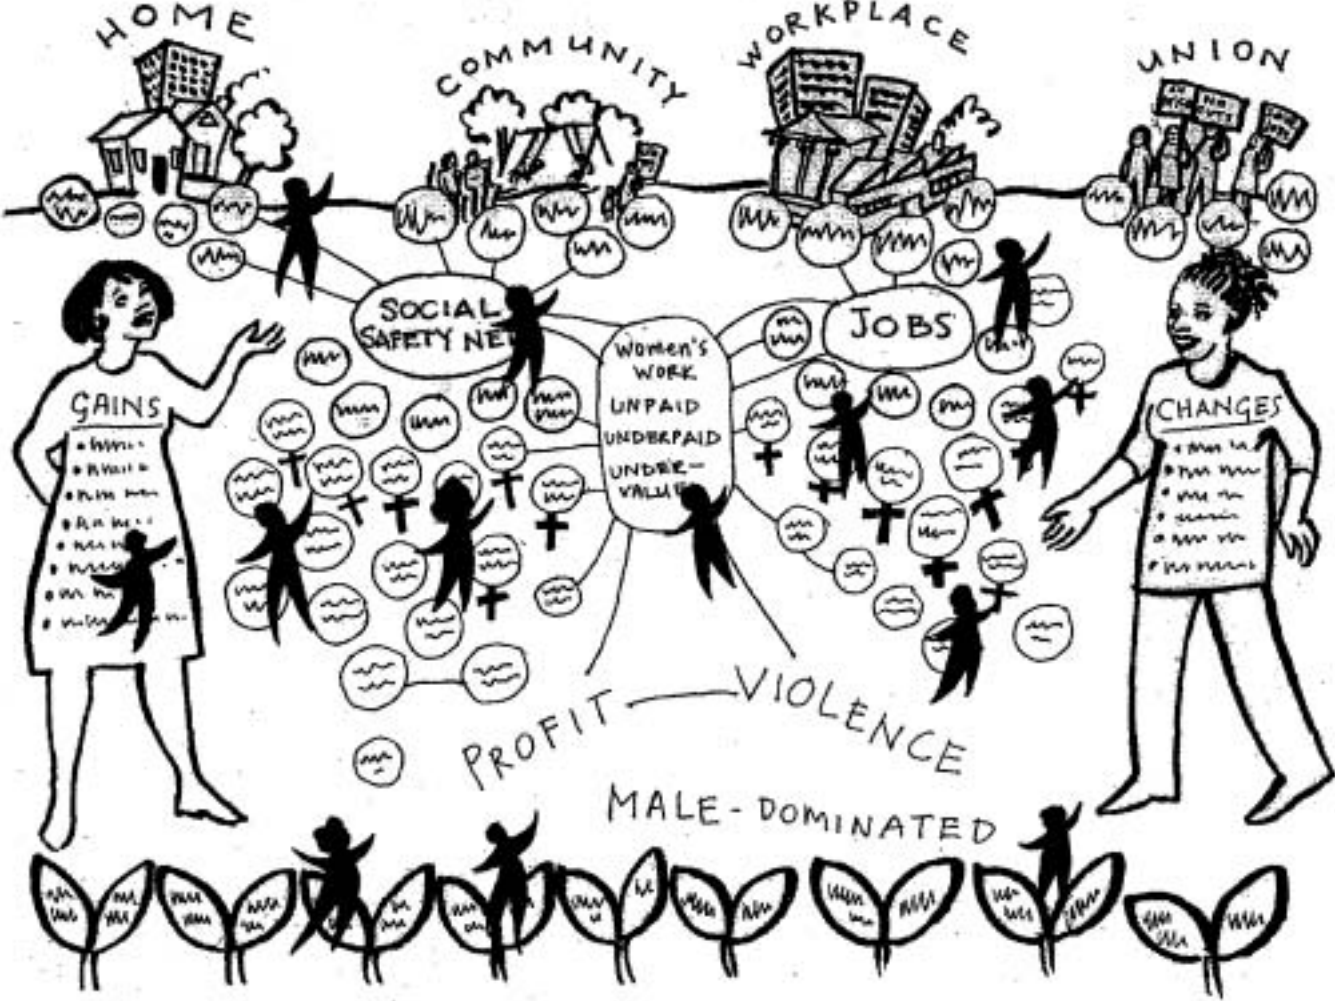 HOME
COMMUNITY
WORKPLACE
UNION
SOCIAL
SAFETY NE
JOBS
Women's
WORK
UNPAID
UNDERPAID
UNDER-
VALUE
GAINS
CHANGES
PROFIT
VIOLENCE
MALE-DOMINATED